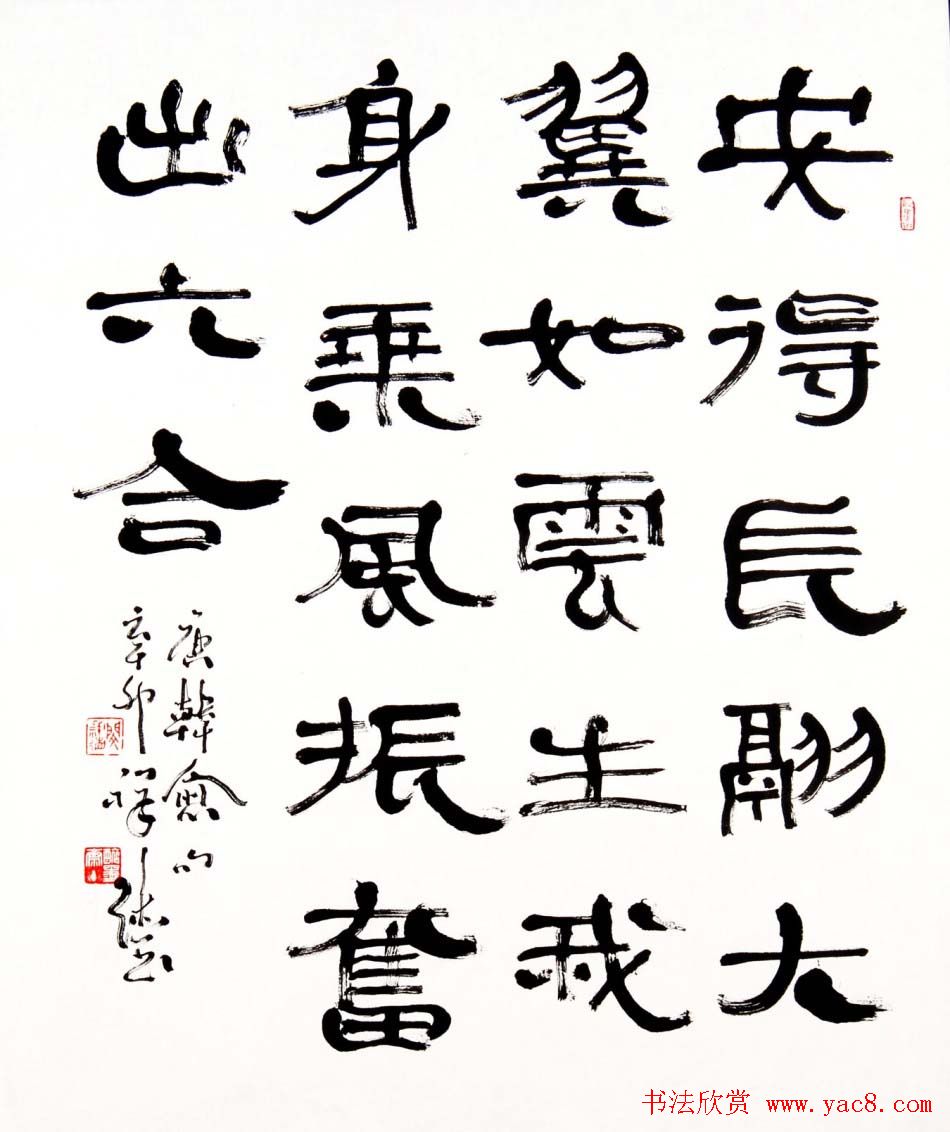 安得長翮大
翼如雲生我
身乗風振奮
出六合
唐韓愈句
辛卯祥之書
书法欣赏 www.yac8.com